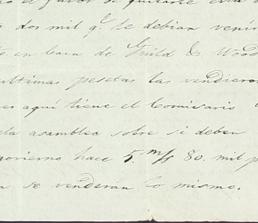 dos mil q.e le debian venir
en casa de Guild & Wood
ultimas pesetas las vendieron
es aqui tiene el Comisario
la asamblea sobre si deben
gobierno hace 5 m/s 80. mil p
se venderán lo mismo.